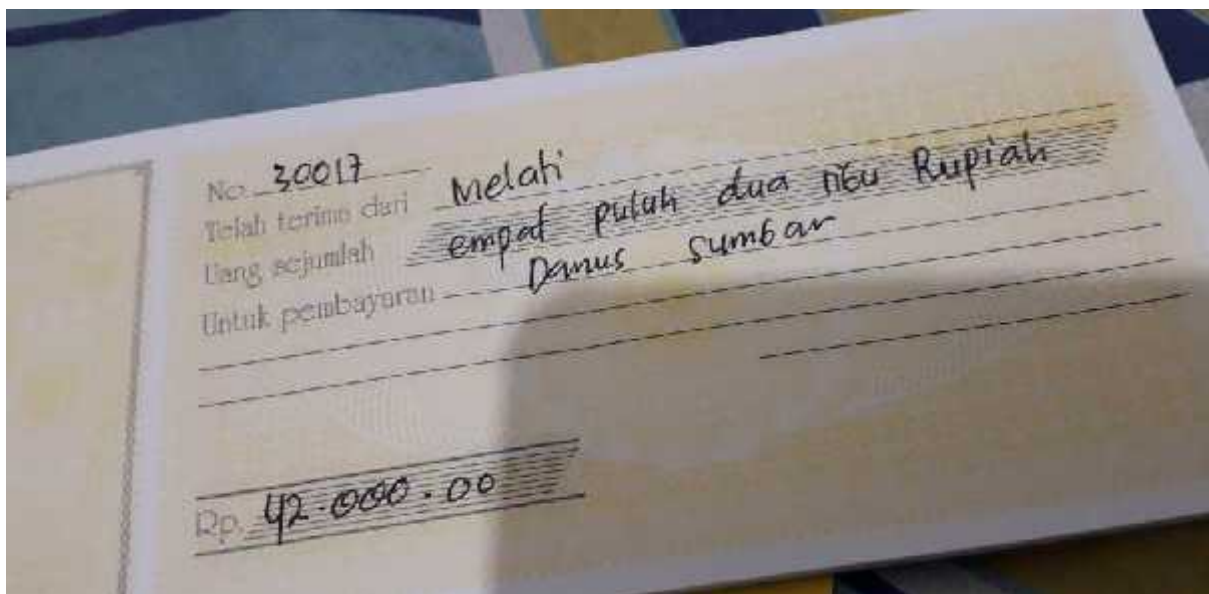 No. 30017
Telah terima dari Melati
Uang sejumlah empat puluh dua ribu Rupiah
Untuk pembayaran Danus Sumbar
Rp. 42.000.00